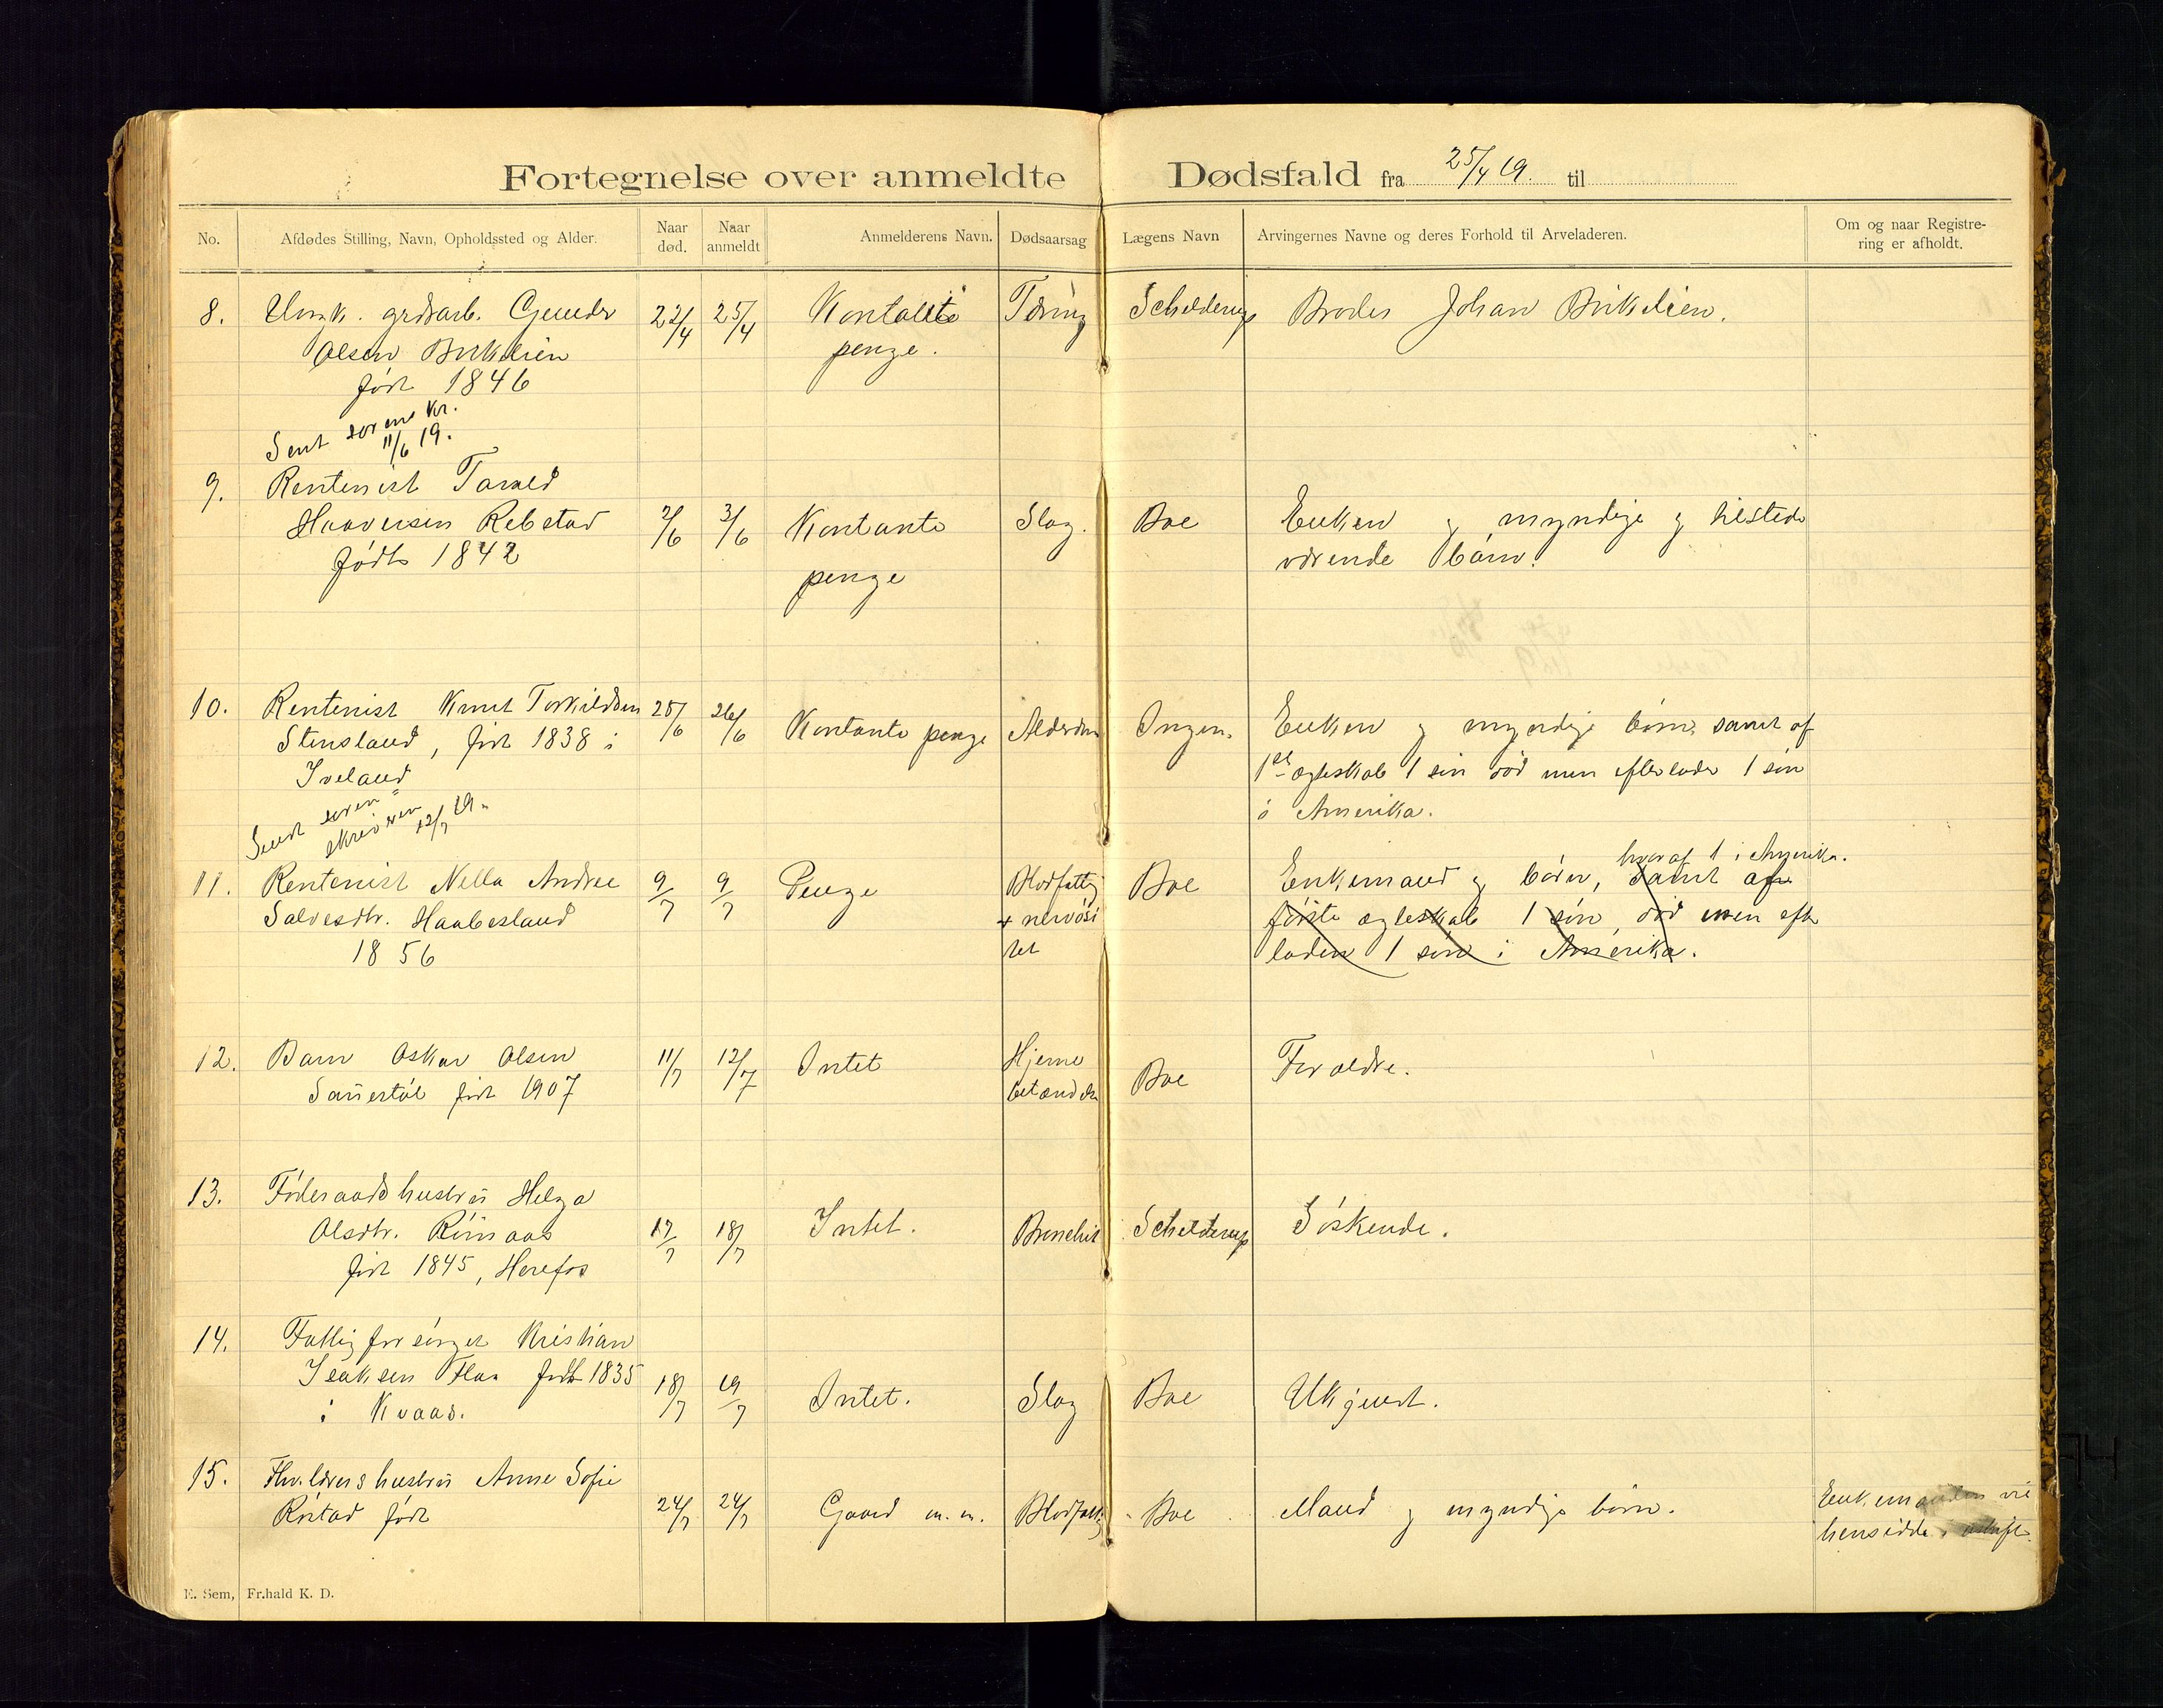 Fortegnelse over anmeldte Dødsfald fra 25/4 19. til
No. Afdødes Stilling, Navn, Opholdssted og Alder. Naar død. Naar anmeldt Anmelderens Navn. Dødsaarsag Lægens Navn Arvingernes Navne og deres Forhold til Arveladeren. Om og naar Registrering er afholdt.
8. Umk. grdsarb. Gunder 22/4 25/4 Kontante Tæring Schelderup Broder Johan Birkelien.
Olsen Birkelien penge.
født 1846
Sent soren kr.
11/6 19.
9. Rentenist Tarald
Haaversen Rebstad 2/6 3/6 Kontante Slag. Boe Enken og myndige og tilstede
født 1842 penge værende børn.
10. Rentenist Knut Torkildsen 25/6 26/6 Kontante penge Alderdom Ingen. Enken og myndige børn, samt af
Stensland, født 1838 i 1ste ægteskab 1 søn død men efterlader 1 søn
Iveland i Amerika.
Sendt soren-
skriveren 12/7 19.
hvoraf 1 i Amerika.
11. Rentenist Nella Andrea 9/7 9/7 Penge Blodfattig Boe Enkemand og børn, samt af
Salvesdtr. Haabesland + nervøsi første ægteskab 1 søn, død men efter
1856 tet lader 1 søn i Amerika.
12. Barn Oskar Olsen 11/7 12/7 Intet Hjerne Boe Forældre.
født 1907 betændelse
13. Føderaadshustru Helga
Olsdtr. Rømaas 17/7 18/7 Intet. Bronchit Schelderup Søskende.
født 1845, Herefos
14. Fattigforsørget Kristian
Isaksen Flaa født 1835 18/7 19/7 Intet. Slag Boe Ukjendt.
i Kvaas.
15. hustru Anne Sofie
Røstad født 24/7 24/7 Gaard m.m. Blodfattig Boe Mand og myndige børn. Enkemanden vil
hensidde i uskifte.
E. Sem, Fr.hald K. D.